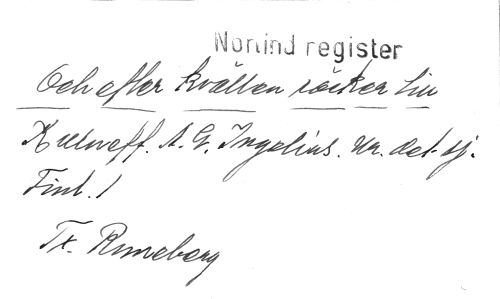 Nordind register
Och efter kvällen söcker hin
Kullervoff. A. G. Ingelius. Ur. det sj.
Finl. 1
Tx. Runeberg